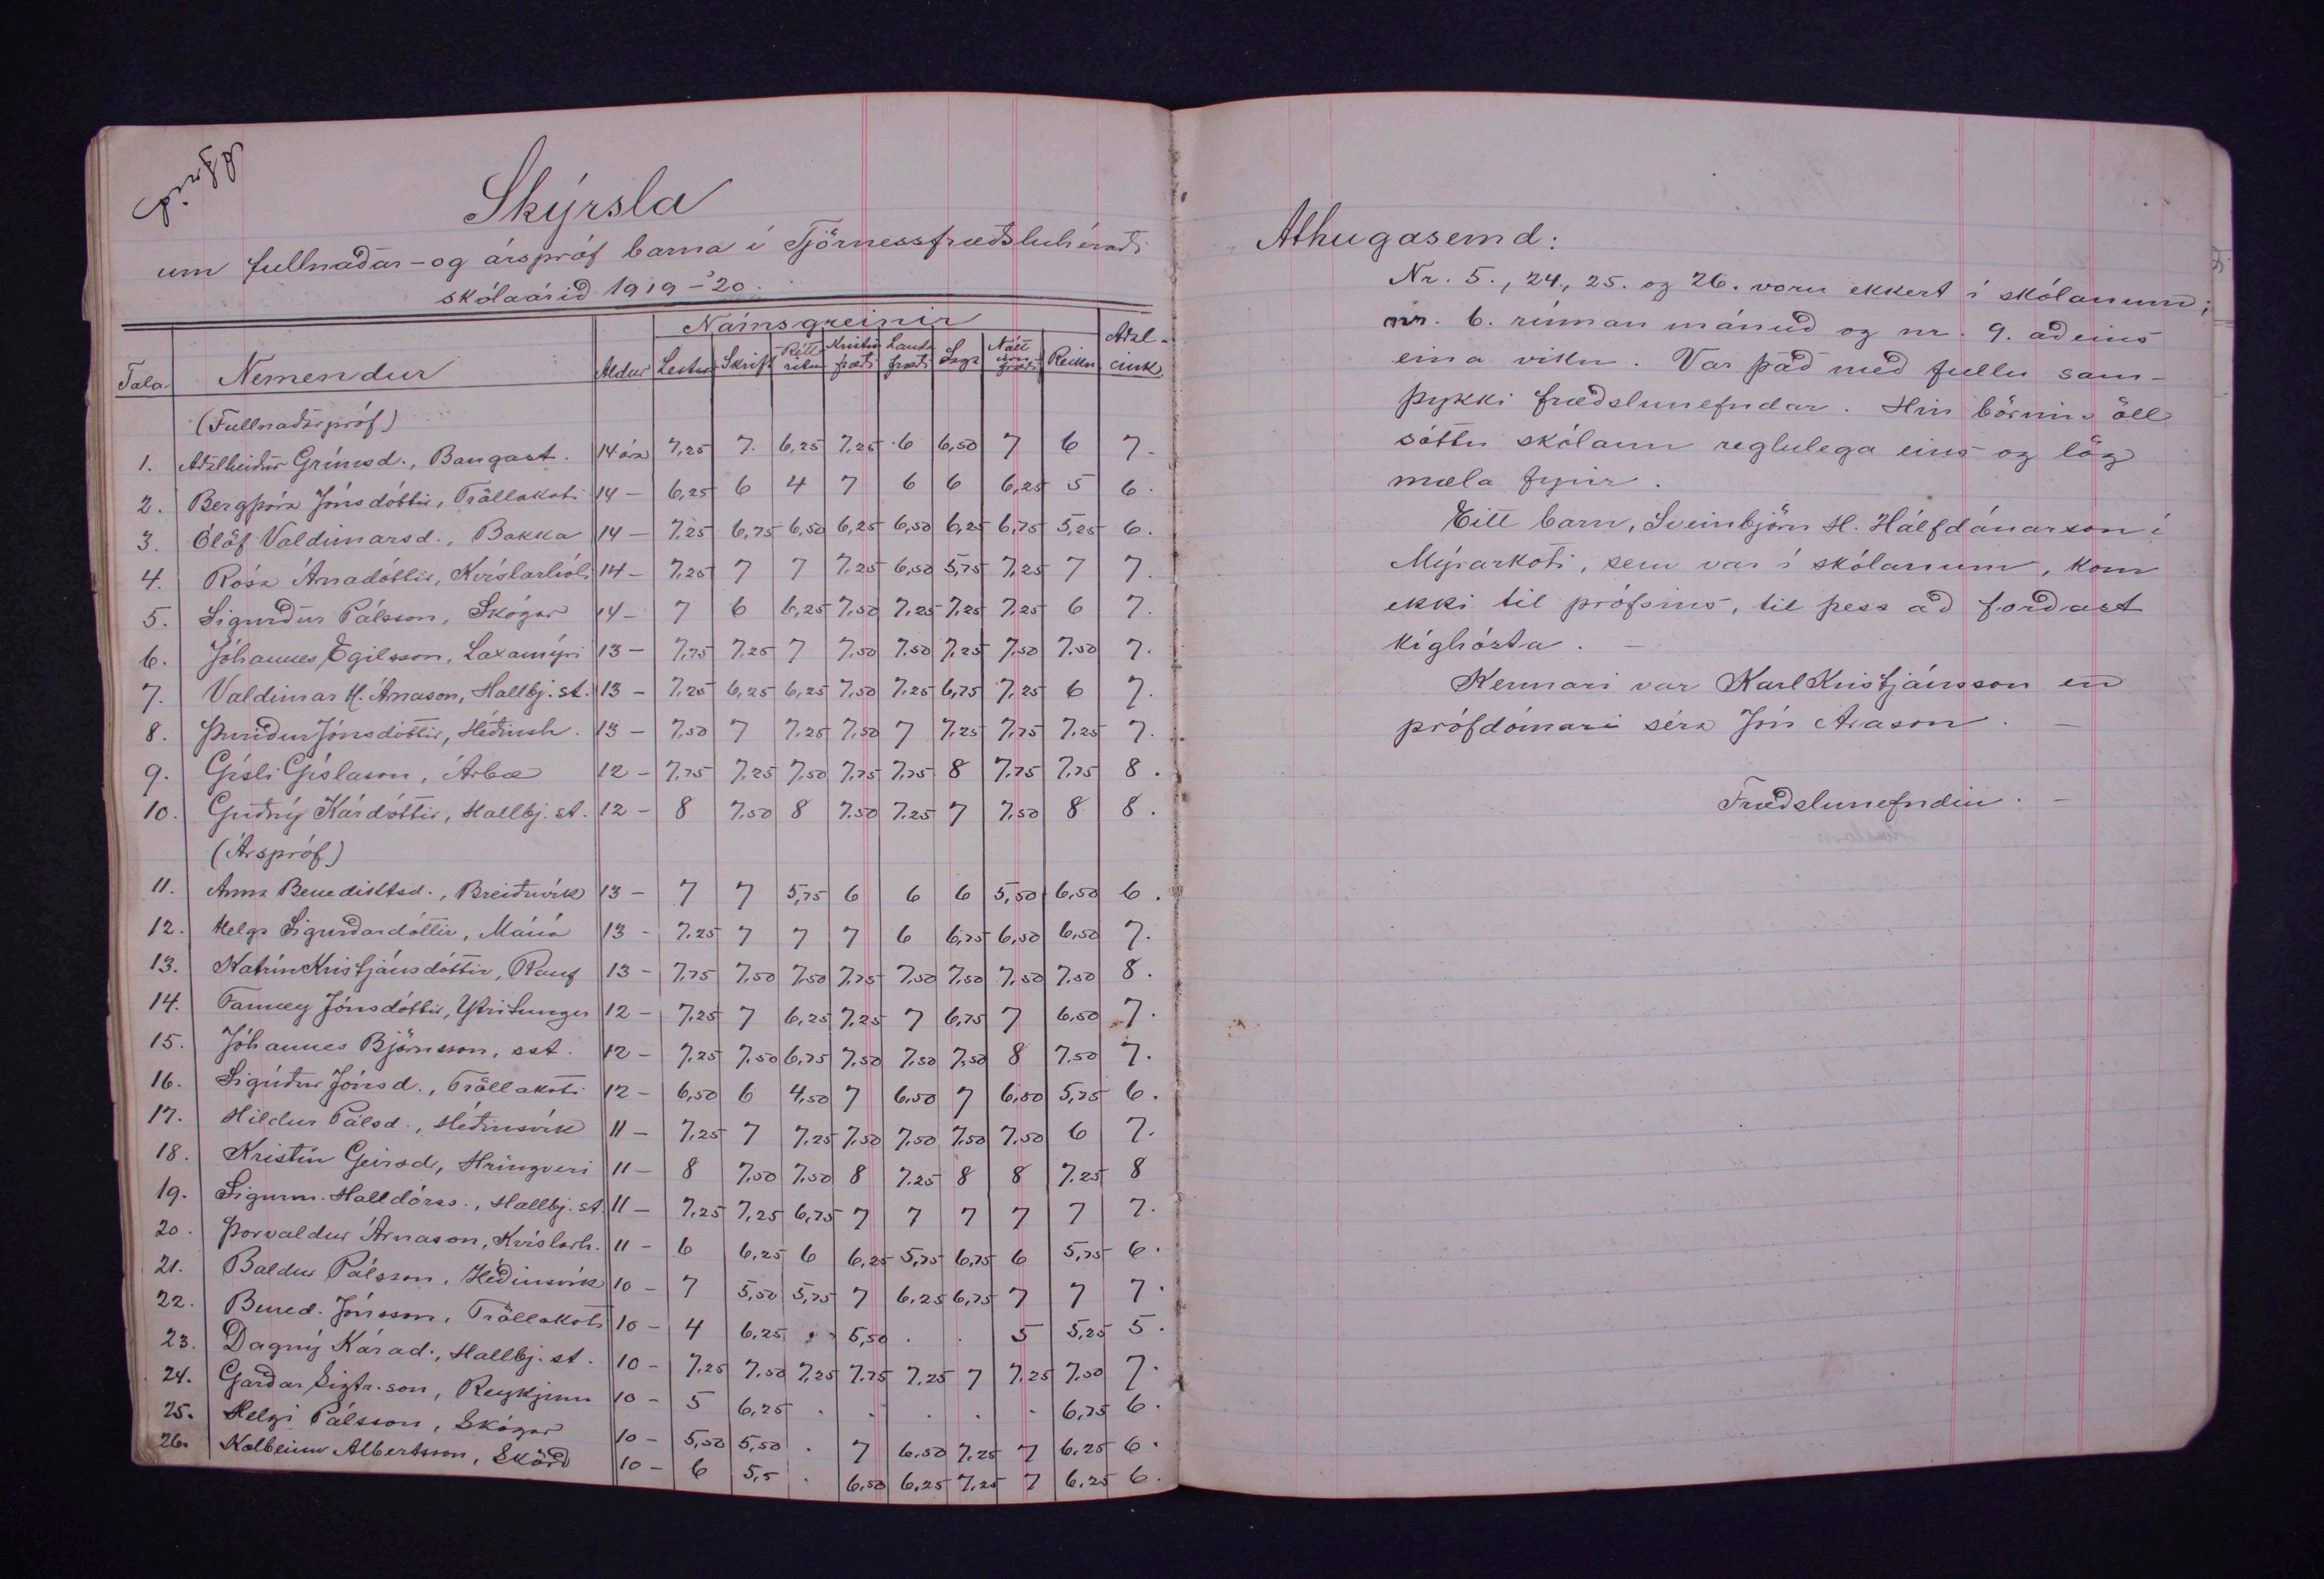 Skýrsla
um fullnaðar- og árspróf barna í Tjörnessfræðsluhéraði
skólaárið 1919-'20.
Tala Nemendur Aldur Námsgreinir Aðal-eink.
Lestur Skrift Rétt ritun Kristin fræði Landa fræði Saga Nátt úru fræði Reikn
(Fullnaðarpróf)
1. Aðalheiður Grímsd., Bangast. 14 ára 7,25 7. 6,25 7,25 6 6,50 7 6 7.
2. Bergþóra Jónsdóttir, Tröllakoti 14 - 6,25 6 4 7 6 6 6,25 5 6.
3. Ólöf Valdimarsd., Bakka 14 - 7,25 6,75 6,50 6,25 6,50 6,25 6,75 5,25 6.
4. Rósa Árnadóttir, Kvíslarhóli 14 - 7,25 7 7 7,25 6,50 5,75 7,25 7 7.
5. Sigurður Pálsson, Skógar 14 - 7 6 6,25 7,50 7,25 7,25 7,25 6 7.
6. Jóhannes Egilsson, Laxamýri 13 - 7,75 7,25 7 7,50 7,50 7,25 7,50 7,50 7.
7. Valdimar H. Árnason, Hallbj.st. 13 - 7,25 6,25 6,25 7,50 7,25 6,75 7,25 6 7.
8. Þuríður Jónsdóttir, Héðinsh. 13 - 7,50 7 7,25 7,50 7 7,25 7,75 7,25 7.
9. Gísli Gíslason, Árbæ 12 - 7,75 7,25 7,50 7,75 7,75 8 7,75 7,75 8.
10. Guðný Káradóttir, Hallbj.st. 12 - 8 7,50 8 7,50 7,25 7 7,50 8 8.
(Árspróf)
11. Anna Benediktsd., Breiðuvík 13 - 7 7 5,75 6 6 6 5,50 6,50 6.
12. Helga Sigurðardóttir, Máná 13 - 7,25 7 7 7 6 6,75 6,50 6,50 7.
13. Katrín Kristjánsdóttir, Rauf 13 - 7,75 7,50 7,50 7,75 7,50 7,50 7,50 7,50 8.
14. Fanney Jónsdóttir, Ytritungu 12 - 7,25 7 6,25 7,25 7 6,75 7 6,50 7.
15. Jóhannes Björnsson, sst. 12 - 7,25 7,50 6,75 7,50 7,50 7,50 8 7,50 7.
16. Sigríður Jónsd., Tröllakoti 12 - 6,50 6 4,50 7 6,50 7 6,50 5,75 6.
17. Hildur Pálsd., Héðinsvík 11 - 7,25 7 7,25 7,50 7,50 7,50 7,50 6 7.
18. Kristín Geirsd, Hringveri 11 - 8 7,50 7,50 8 7,25 8 8 7,25 8
19. Sigurm. Halldórss., Hallbj.st. 11 - 7,25 7,25 6,75 7 7 7 7 7 7.
20. Þorvaldur Árnason, Kvíslarh. 11 - 6 6,25 6 6,25 5,75 6,75 6 5,75 6.
21. Baldur Pálsson, Héðinsvík 10 - 7 5,50 5,75 7 6,25 6,75 7 7 7.
22. Bened. Jónsson, Tröllakoti 10 - 4 6,25 . 5,50 . . 5 5,25 5.
23. Dagný Kárad., Hallbj.st. 10 - 7,25 7,50 7,25 7,75 7,25 7 7,25 7,50 7.
24. Garðar Sigtr.son, Reykjum 10 - 5 6,25 . . . . . 6,75 6.
25. Helgi Pálsson, Skógar 10 - 5,50 5,50 . 7 6,50 7,25 7 6,25 6.
26. Kolbeinn Albertsson, Skörð 10 - 6 5,5 . 6,50 6,25 7,25 7 6,25 6.
Athugasemd:
Nr. 5., 24., 25. og 26. voru ekkert í skólanum;
nr. 6. rúman mánuð og nr. 9. aðeins
eina viku. Var það með fullu sam-
þykki fræðslunefndar. Hin börnin öll
sóttu skólann reglulega eins og lög
mæla fyrir.
Eitt barn, Sveinbjörn H. Hálfdánarson í
Mýrarkoti, sem var í skólanum, kom
ekki til prófsins, til þess að forðast
kíghósta. -
Kennari var Karl Kristjánsson en
prófdómari séra Jón Arason. -
Fræðslunefndin. -